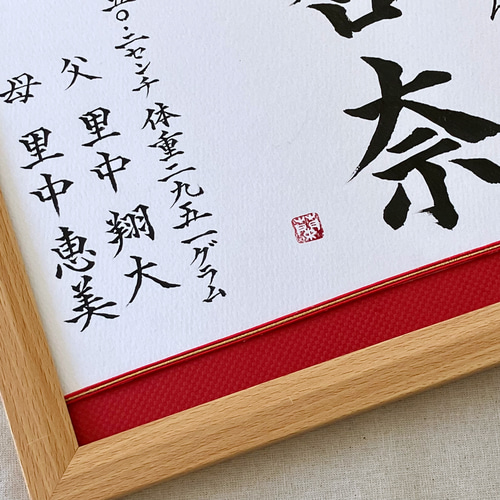 奈
五〇.二センチ 体重二九五一グラム
父 里中 翔大
母 里中 恵美